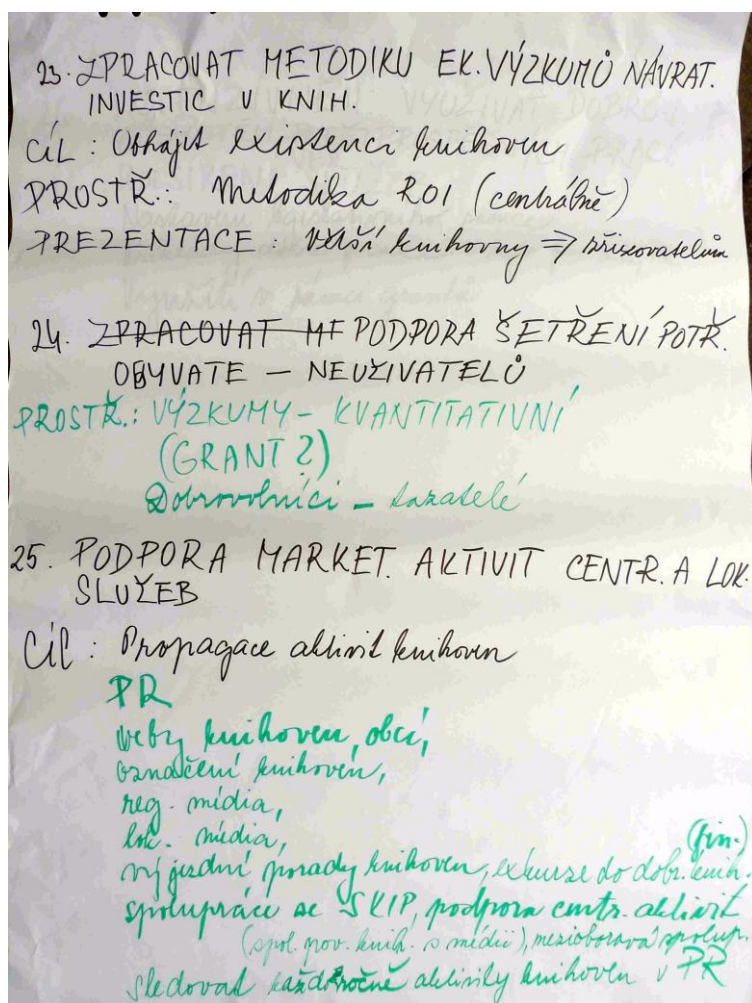 23. ZPRACOVAT METODIKU EK. VÝZKUMŮ NÁVRAT.
INVESTIC V KNIH.
CÍL : Obhájit existenci knihoven
PROSTŘ.: Metodika ROI (centrálně)
PREZENTACE : Větší knihovny ⇒ zřizovatelům
24. ZPRACOVAT ME PODPORA ŠETŘENÍ POTŘ.
OBYVATE – NEUŽIVATELŮ
PROSTŘ.: VÝZKUMY – KVANTITATIVNÍ
(GRANT ?)
Dobrovolníci – tazatelé
25. PODPORA MARKET. AKTIVIT CENTR. A LOK.
SLUŽEB
Cíl : Propagace aktivit knihoven
PR
weby knihoven, obcí,
označení knihoven,
reg. média,
lok. média,
(fin.)
výjezdní porady knihoven, exkurze do dobr. knih.
spolupráce se SKIP, podpora centr. aktivit
(spol. pov. knih. s médii), mezioborová spolup.
sledovat každoročně aktivity knihoven v PR